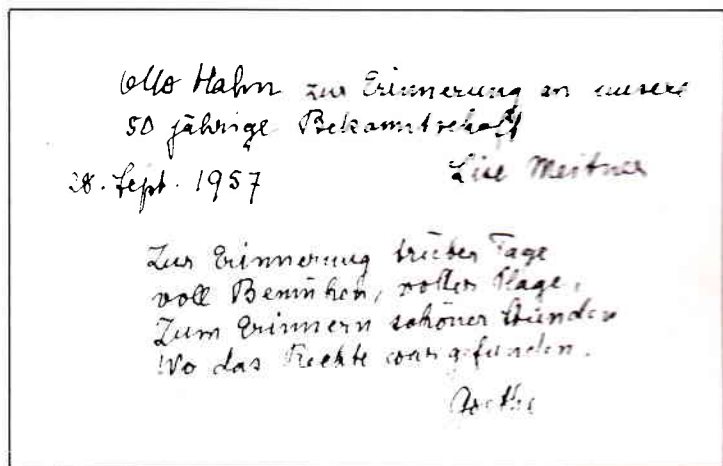 Otto Hahn zur Erinnerung an unsere
50 jährige Bekanntschaft
28. Sept. 1957 Lise Meitner
Zur Erinnerung trüber Tage
voll Bemühen, voller Plage,
Zum Erinnern schöner Stunden
Wo das Rechte war gefunden.
Goethe